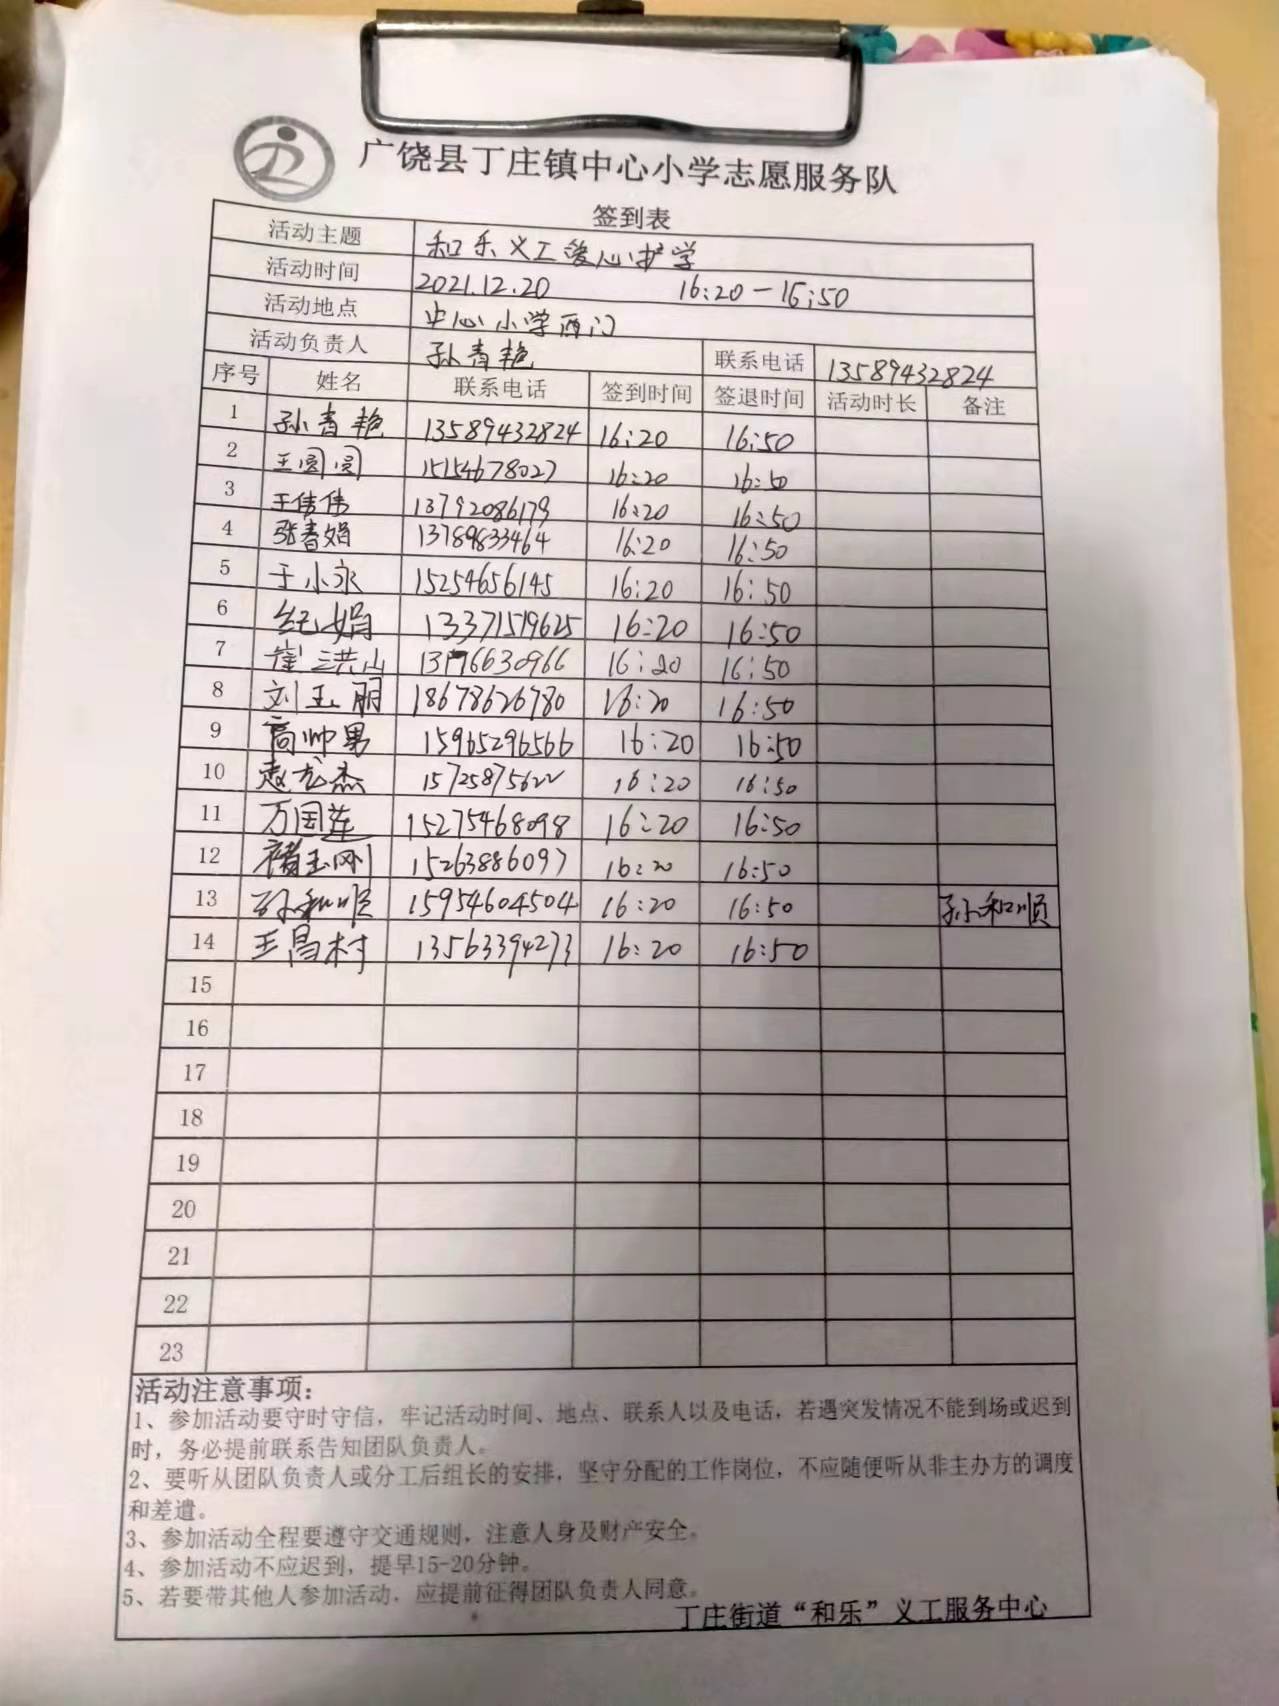 广饶县丁庄镇中心小学志愿服务队
签到表
活动主题 和乐义工爱心护学
活动时间 2021.12.20 16:20-16:50
活动地点 中心小学西门
活动负责人 孙青艳 联系电话 13589432824
序号 姓名 联系电话 签到时间 签退时间 活动时长 备注
1 孙青艳 13589432824 16:20 16:50
2 王圆圆 15154678027 16:20 16:50
3 王伟伟 13792086179 16:20 16:50
4 张春娟 13789833464 16:20 16:50
5 于小永 15254656145 16:20 16:50
6 纪娟 13371519625 16:20 16:50
7 崔洪山 16:20 16:50
8 刘玉丽 18678626780 16:20 16:50
9 高帅男 15965296566 16:20 16:50
10 赵龙杰 15725875622 16:20 16:50
11 万国莲 15275468098 16:20 16:50
12 褚玉刚 15263886097 16:20 16:50
13 孙和顺 15954604504 16:20 16:50 孙和顺
14 王昌村 13563394273 16:20 16:50
15
16
17
18
19
20
21
22
23
活动注意事项：
1、参加活动要守时守信，牢记活动时间、地点、联系人以及电话，若遇突发情况不能到场或迟到
时，务必提前联系告知团队负责人。
2、要听从团队负责人或分工后组长的安排，坚守分配的工作岗位，不应随便听从非主办方的调度
和差遣。
3、参加活动全程要遵守交通规则，注意人身及财产安全。
4、参加活动不应迟到，提早15-20分钟。
5、若要带其他人参加活动，应提前征得团队负责人同意。
丁庄街道“和乐”义工服务中心